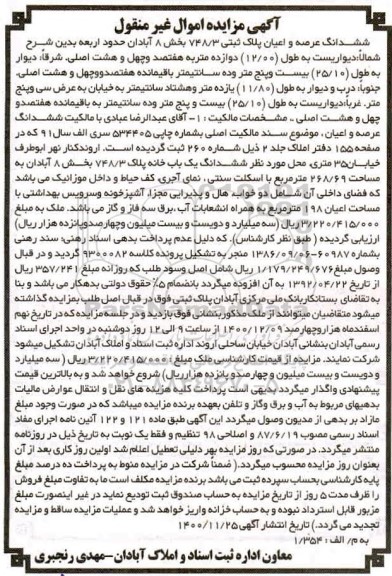 آگهی مزایده اموال غیر منقول
ششدانگ عرصه و اعیان پلاک ثبتی ۷۴۸/۳ بخش ۸ آبادان حدود اربعه بدین شرح
شمالاً:دیواریست به طول (۱۲/۰۰) دوازده متربه هفتصد وچهل و هشت اصلی. شرقاً: دیوار
به طول (۲۵/۱۰) بیست وپنج متر وده سانتیمتر باقیمانده هفتصدوچهل و هشت اصلی.
جنوباً: درب و دیوار به طول (۱۱/۸۰) یازده متر وهشتاد سانتیمتر به خیابان به عرض سی وپنج
متر. غرباً:دیواریست به طول (۲۵/۱۰) بیست و پنج متر وده سانتیمتر به باقیمانده هفتصدو
چهل و هشت اصلی .. مشخصات مالکیت : ۱- آقای عبدالرضا عبادی با مالکیت ششدانگ
عرصه و اعیان ، موضوع سند مالکیت اصلی بشماره چاپی ۵۳۴۴۰۵ سری الف سال ۹۱ که در
صفحه ۱۵۵ دفتر املاک جلد ۲ ذیل شماره ۲۶۰ ثبت گردیده است. اروندکنار نهر ابوطرف
خیابان۳۵ متری، محل مورد نظر ششدانگ یک باب خانه پلاک ۷۴۸/۳ بخش ۸ آبادان به
مساحت ۲۶۸/۶۹ مترمربع با اسکلت سنتی . نمای آجری، کف حیاط و داخل موزائیک می باشد
که فضای داخلی آن شامل دو خواب هال و پذیرایی مجزا، آشپزخونه وسرویس بهداشتی با
مساحت اعیان ۹۸ مترمربع به همراه انشعابات آب ،برق سه فاز و گاز می باشد. ملک به مبلغ
۳/۲۲۰/۴۱۵/۰۰۰ ریال (سه میلیارد و دویست و بیست میلیون وچهارصدوپانزده هزار ریال)
ارزیابی گردیده ( طبق نظر کارشناس). که دلیل عدم پرداخت بدهی اسناد رهنی: سند رهنی
بشماره ۶۰۹۸۷-۱۳۸۶/۰۹/۰۶ منجر به تشکیل پرونده کلاسه ۹۳۰۰۰۸۲ گردید و در قبال
وصول مبلغ۱/۱۷۹/۲۴۹/۶۷۶ ریال شامل اصل وسود طلب که روزانه مبلغ ۳۵۷/۲۴۱ ریال
از تاریخ ۱۳۹۲/۰۴/۲۲ به آن افزوده میگردد بانضمام ۵٪ حقوق دولتی بدهکار می باشد و بنا
به تقاضای بستانکاربانک ملی مرکزی آبادان پلاک ثبتی فوق در قبال اصل طلب بمزایده گذاشته
میشود متقاضیان میتوانند از ملک مذکوربنشانی فوق بازدید و در جلسه مزایده که در تاریخ نهم
اسفندماه هزاروچهارصد ۱۴۰۰/۱۲/۰۹ از ساعت ۹ الی ۱۲ روز دوشنبه در واحد اجرای اسناد
رسمی آبادان بنشانی آبادان خیابان ساحلی اروند اداره ثبت اسناد و املاک آبادان تشکیل میشود
شرکت نمایند. مزایده از قیمت کارشناسی ملک مبلغ (۳/۲۲۰/۴۱۵/۰۰۰) ریال ( سه میلیارد
و دویست و بیست میلیون و چهارصدو پانزده هزارریال) شروع خواهد شد و به بالاترین قیمت
پیشنهادی واگذار میگردد بدیهی است پرداخت کلیه هزینه های نقل و انتقال عوارض مالیات
بدهیهای مربوط به آب و برق وگاز و تلفن بعهده برنده مزایده میباشد که در صورت وجود مبلغ
مازاد بر بدهی از مدیون وصول میگردد این آگهی طبق ماده ۱۲۱ و ۱۲۲ آئین نامه اجرای مفاد
اسناد رسمی مصوب ۸۷/۶/۱۹ و اصلاحی ۹۸ تنظیم و فقط یک نوبت به تاریخ ذیل در روزنامه
منتشر میگردد. در صورتی که روز مزایده بهر دلیلی تعطیل اعلام شد اولین روز کاری بعد از آن
بعنوان روز مزایده محسوب میگردد.( ضمناً شرکت در مزایده منوط به پرداخت ده درصد مبلغ
پایه کارشناسی بحساب سپرده ثبت می باشد برنده مزایده مکلف است ما به تفاوت مبلغ فروش
را ظرف مدت ۵ روز از تاریخ مزایده به حساب صندوق ثبت تودیع نماید در غیر اینصورت مبلغ
مزبور قابل استرداد نبوده و به حساب خزانه واریز خواهد شد و عملیات مزایده ساقط و مزایده
تجدید می گردد.) تاریخ انتشار آگهی ۱۴۰۰/۱۱/۲۵
به م/ الف : ۱/۳۵۴
معاون اداره ثبت اسناد و املاک آبادان-مهدی رنجبری